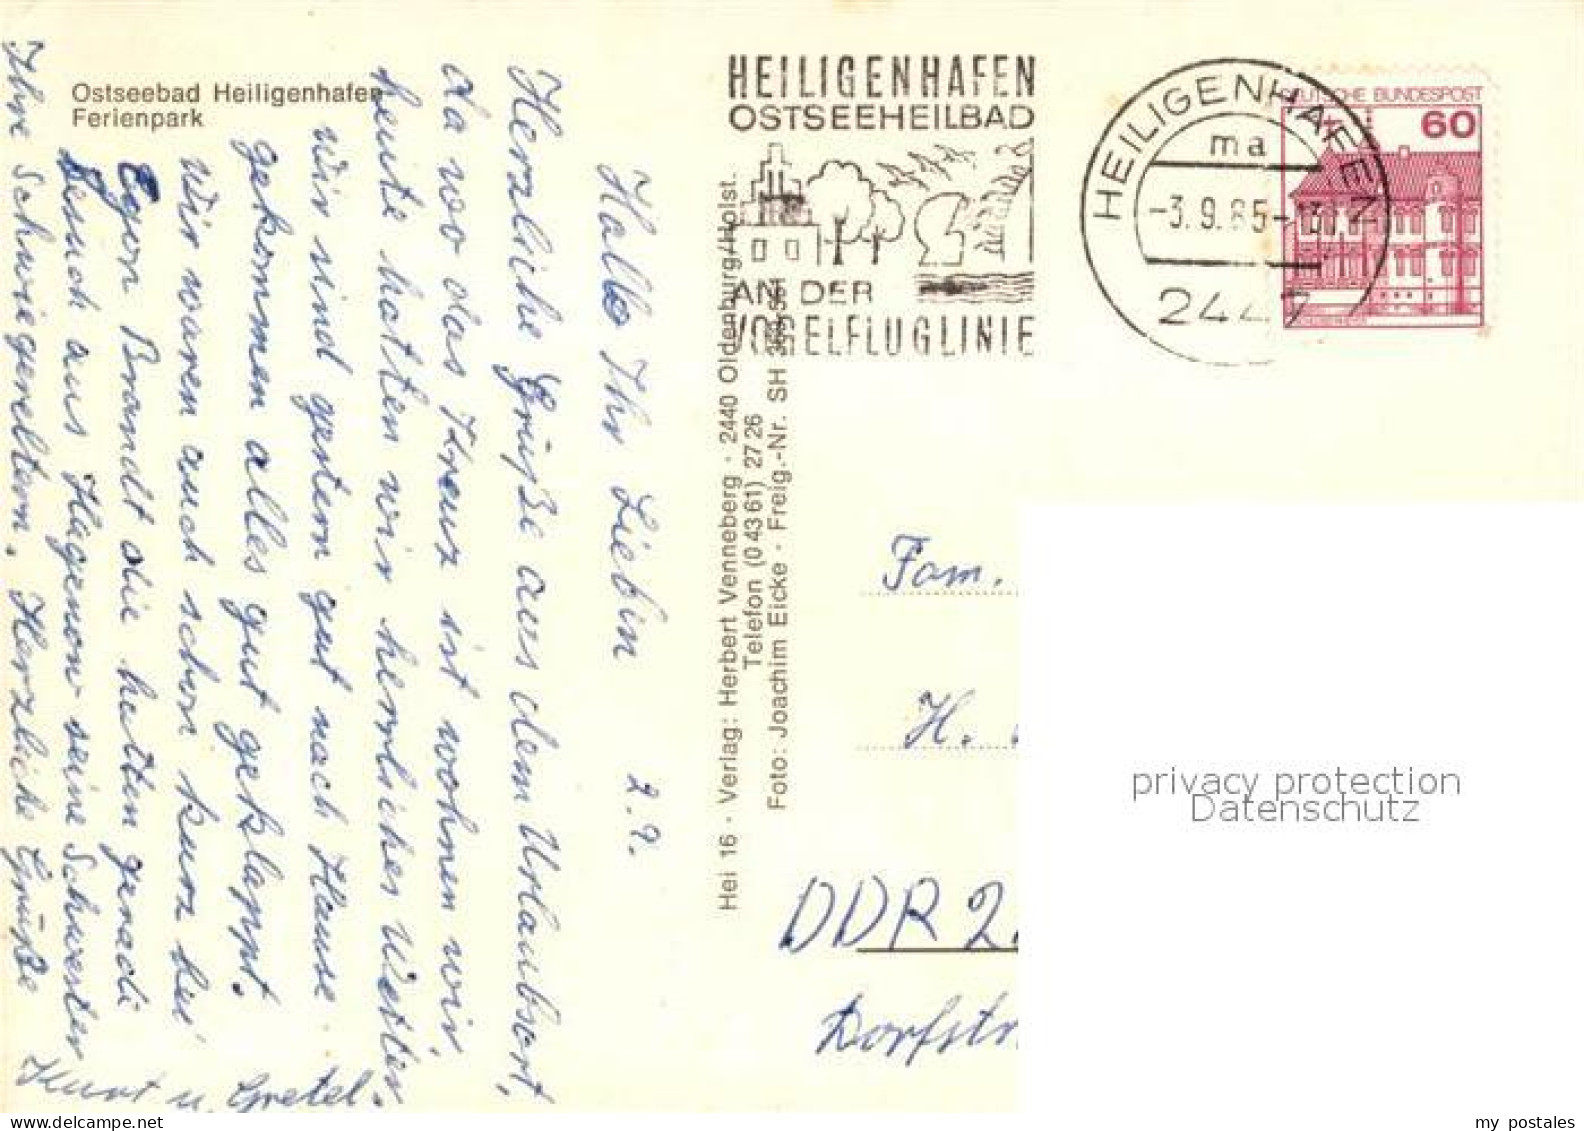 Ostseebad Heiligenhafen
Ferienpark
HEILIGENHAFEN
OSTSEEHEILBAD
AN DER
VOGELFLUGLINIE
HEILIGENHAFEN
ma
-3.9.85-13
2447
DEUTSCHE BUNDESPOST
60
Hei 16 · Verlag: Herbert Venneberg · 2440 Oldenburg/Holst.
Telefon (0 43 61) 27 26
Foto: Joachim Eicke · Freig.-Nr. SH
Hallo Ihr Liebin 2.9.
Herzliche Grüße aus dem Urlaubsort,
da wo das Kreuz ist wohnen wir,
heute hatten wir herrliches Wetter.
Wir sind gestern gut nach Hause
gekommen alles gut geklappt.
Wir waren auch schon kurz bei
Egon Brandt die hatten geradi
Besuch aus Hagenow seine Schwester
Ihre Schwiegereltern. Herzliche Grüße
Kurt u. Gretel.
Fam.
H.
DDR 2
Dorfstr
privacy protection
Datenschutz
my postales